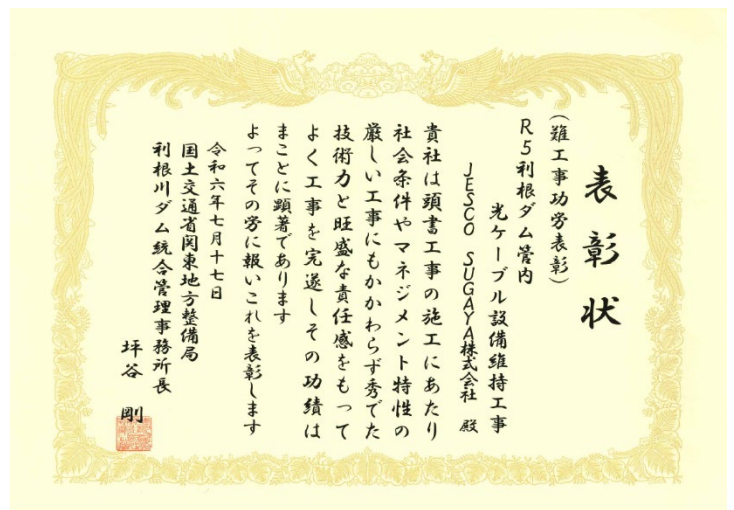 表彰状
(難工事功労表彰)
R5利根ダム管内
光ケーブル設備維持工事
JESCO SUGAYA株式会社 殿
貴社は頭書工事の施工にあたり
社会条件やマネジメント特性の
厳しい工事にもかかわらず秀でた
技術力と旺盛な責任感をもって
よく工事を完遂しその功績は
まことに顕著であります
よってその労に報いこれを表彰します
令和六年七月十七日
国土交通省関東地方整備局
利根川ダム統合管理事務所長
坪谷 剛